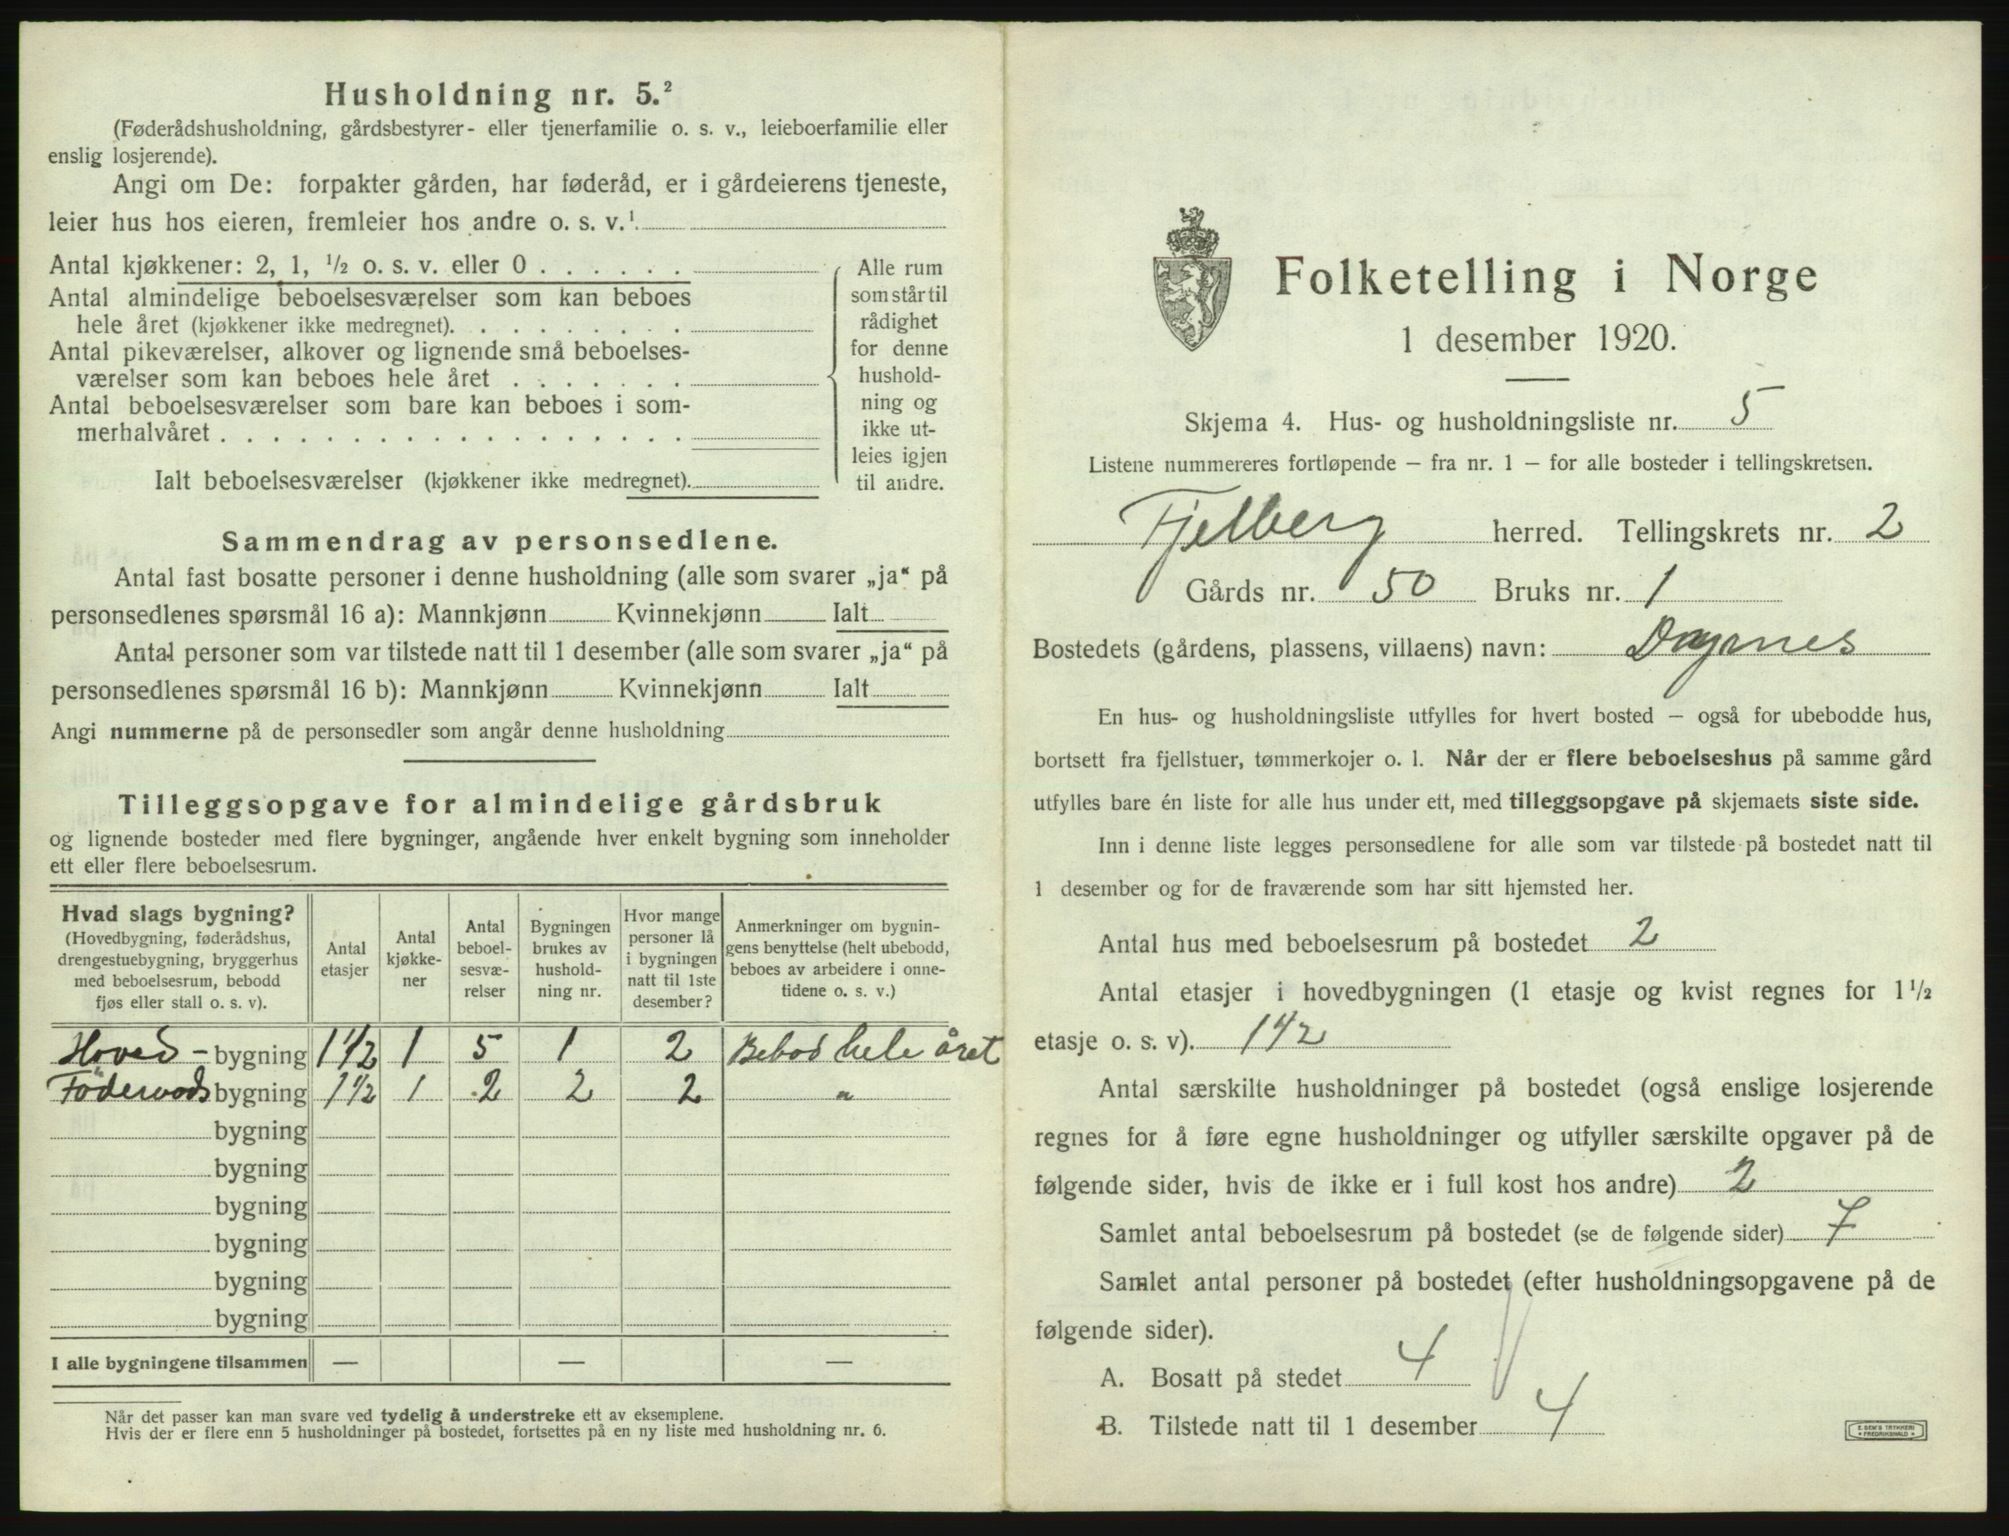 Husholdning nr. 5.²
(Føderådshusholdning, gårdsbestyrer- eller tjenerfamilie o. s. v., leieboerfamilie eller
enslig losjerende).
Angi om De: forpakter gården, har føderåd, er i gårdeierens tjeneste,
leier hus hos eieren, fremleier hos andre o. s. v.¹
Antal kjøkkener: 2, 1, ½ o. s. v. eller 0 . . . . . .
Antal almindelige beboelsesværelser som kan beboes
hele året (kjøkkener ikke medregnet). . . . . . . . .
Antal pikeværelser, alkover og lignende små beboelses-
værelser som kan beboes hele året . . . . . . .
Antal beboelsesværelser som bare kan beboes i som-
merhalvåret . . . . . . . . . . . . . . . . . .
Ialt beboelsesværelser (kjøkkener ikke medregnet).
Alle rum
som står til
rådighet
for denne
hushold-
ning og
ikke ut-
leies igjen
til andre.
Sammendrag av personsedlene.
Antal fast bosatte personer i denne husholdning (alle som svarer „ja“ på
personsedlenes spørsmål 16 a): Mannkjønn Kvinnekjønn Ialt
Antal personer som var tilstede natt til 1 desember (alle som svarer „ja“ på
personsedlenes spørsmål 16 b): Mannkjønn Kvinnekjønn Ialt
Angi nummerne på de personsedler som angår denne husholdning
Tilleggsopgave for almindelige gårdsbruk
og lignende bosteder med flere bygninger, angående hver enkelt bygning som inneholder
ett eller flere beboelsesrum.
Hvad slags bygning?
(Hovedbygning, føderådshus,
drengestuebygning, bryggerhus
med beboelsesrum, bebodd
fjøs eller stall o. s. v).
Antal
etasjer
Antal
kjøkke-
ner
Antal
beboel-
sesvæ-
relser
Bygningen
brukes av
hushold-
ning nr.
Hvor mange
personer lå
i bygningen
natt til 1ste
desember?
Anmerkninger om bygnin-
gens benyttelse (helt ubebodd,
beboes av arbeidere i onne-
tidene o. s. v.)
Hoved-bygning 1 1/2 1 5 1 2 Bebod hele året
Föderaads bygning 1 1/2 1 2 2 2 "
bygning
bygning
bygning
bygning
bygning
bygning
I alle bygningene tilsammen — — —
Når det passer kan man svare ved tydelig å understreke ett av eksemplene.
Hvis der er flere enn 5 husholdninger på bostedet, fortsettes på en ny liste med husholdning nr. 6.
Folketelling i Norge
1 desember 1920.
Skjema 4. Hus- og husholdningsliste nr. 5
Listene nummereres fortløpende — fra nr. 1 — for alle bosteder i tellingskretsen.
Fjelberg herred. Tellingskrets nr. 2
Gårds nr. 50 Bruks nr. 1
Bostedets (gårdens, plassens, villaens) navn:
En hus- og husholdningsliste utfylles for hvert bosted — også for ubebodde hus,
bortsett fra fjellstuer, tømmerkojer o. l. Når der er flere beboelseshus på samme gård
utfylles bare én liste for alle hus under ett, med tilleggsopgave på skjemaets siste side.
Inn i denne liste legges personsedlene for alle som var tilstede på bostedet natt til
1 desember og for de fraværende som har sitt hjemsted her.
Antal hus med beboelsesrum på bostedet 2
Antal etasjer i hovedbygningen (1 etasje og kvist regnes for 1½
etasje o. s. v). 1 1/2
Antal særskilte husholdninger på bostedet (også enslige losjerende
regnes for å føre egne husholdninger og utfyller særskilte opgaver på de
følgende sider, hvis de ikke er i full kost hos andre) 2
Samlet antal beboelsesrum på bostedet (se de følgende sider) 7
Samlet antal personer på bostedet (efter husholdningsopgavene på de
følgende sider).
A. Bosatt på stedet 4
B. Tilstede natt til 1 desember 4
E. SEM'S TRYKKERI
FREDRIKSHALD